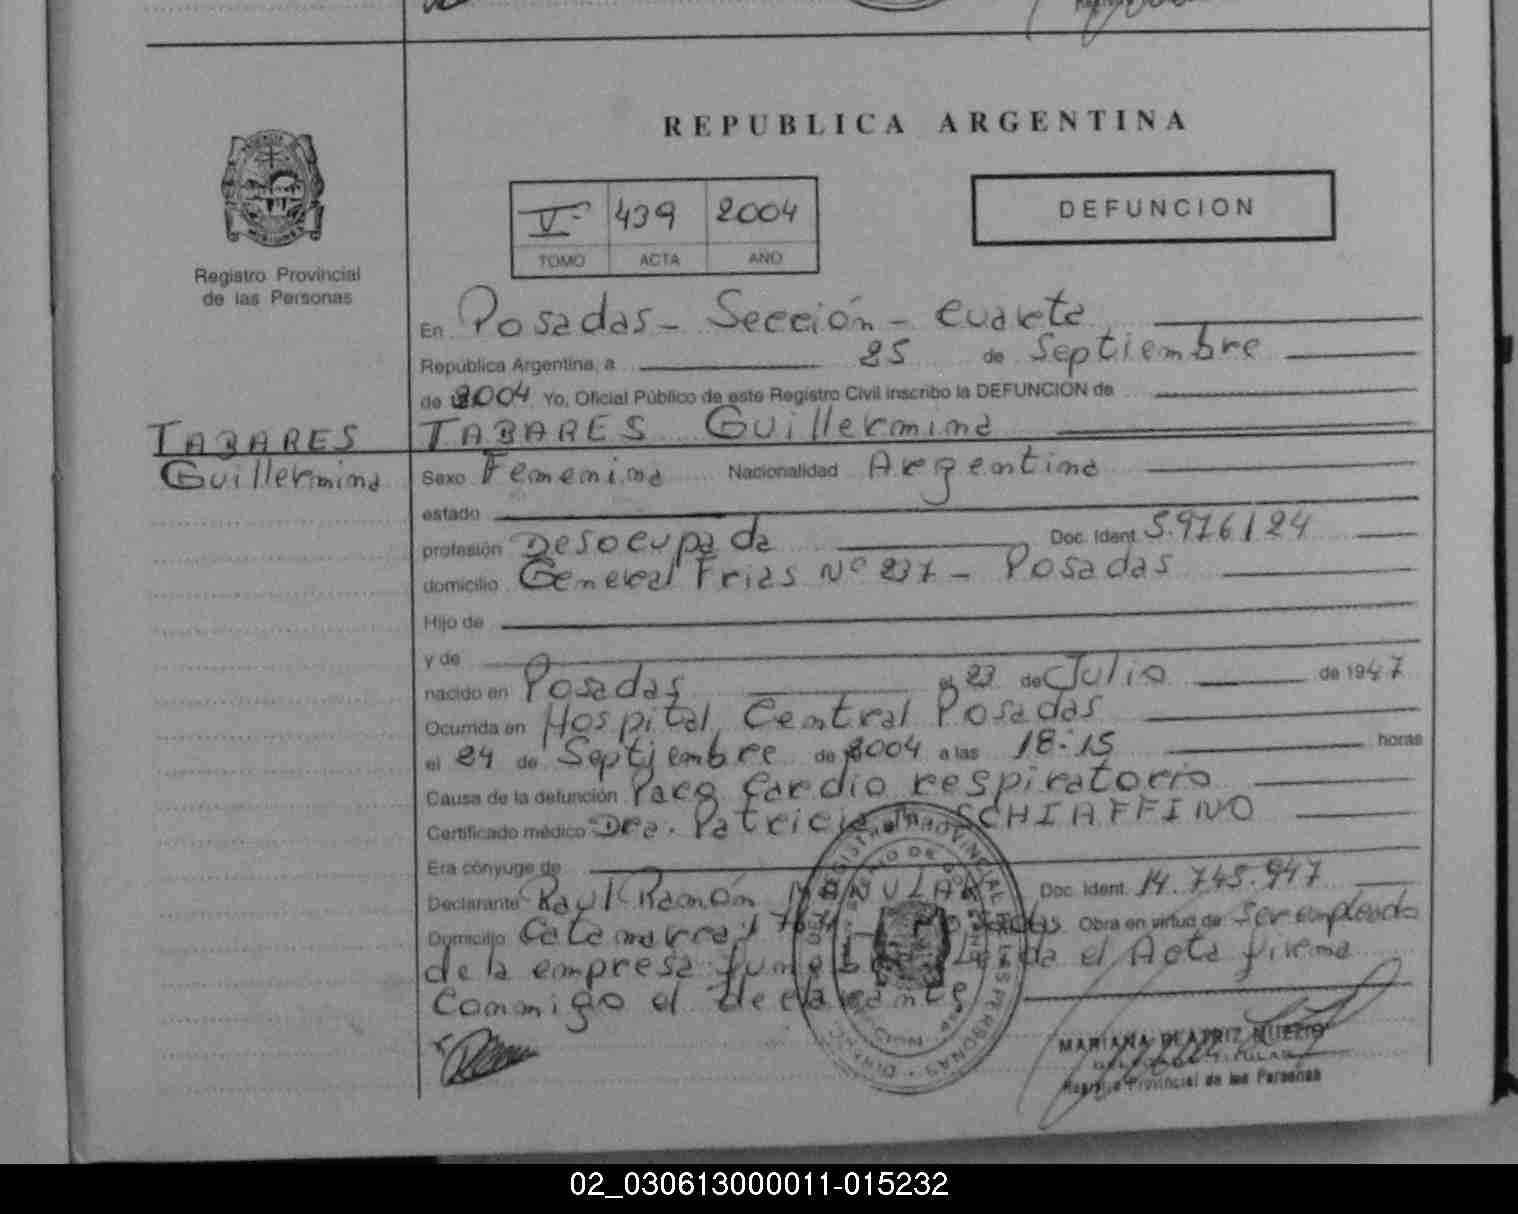 REPUBLICA ARGENTINA
V 439 2004
TOMO ACTA AÑO
DEFUNCION
Registro Provincial
de las Personas
En Posadas - Sección - Cuarta
República Argentina, a 25 de Septiembre
de 2004 Yo, Oficial Público de este Registro Civil inscribo la DEFUNCION de
TABARES Guillermina
TABARES
Guillermina
Sexo Femenina Nacionalidad Argentina
estado
profesión Desocupada Doc. Ident. 5.976.124
domicilio General Frias Nº 237 - Posadas
Hijo de
y de
nacido en Posadas el 23 de Julio de 1947
Ocurrida en Hospital Central Posadas
el 24 de Septiembre de 2004 a las 18:15 horas
Causa de la defunción Paro Cardio respiratorio
Certificado médico Dra. Patricia SCHIAFFINO
Era cónyuge de
Declarante Raul Ramón Doc. Ident. 14.745.947
Domicilio Catamarca y Posadas Obra en virtud de Ser empleado
de la empresa funebre Leida el Acta firma
Conmigo el declarante
MARIANA BEATRIZ MUEZIO
TITULAR
Registro Provincial de las Personas
02_030613000011-015232